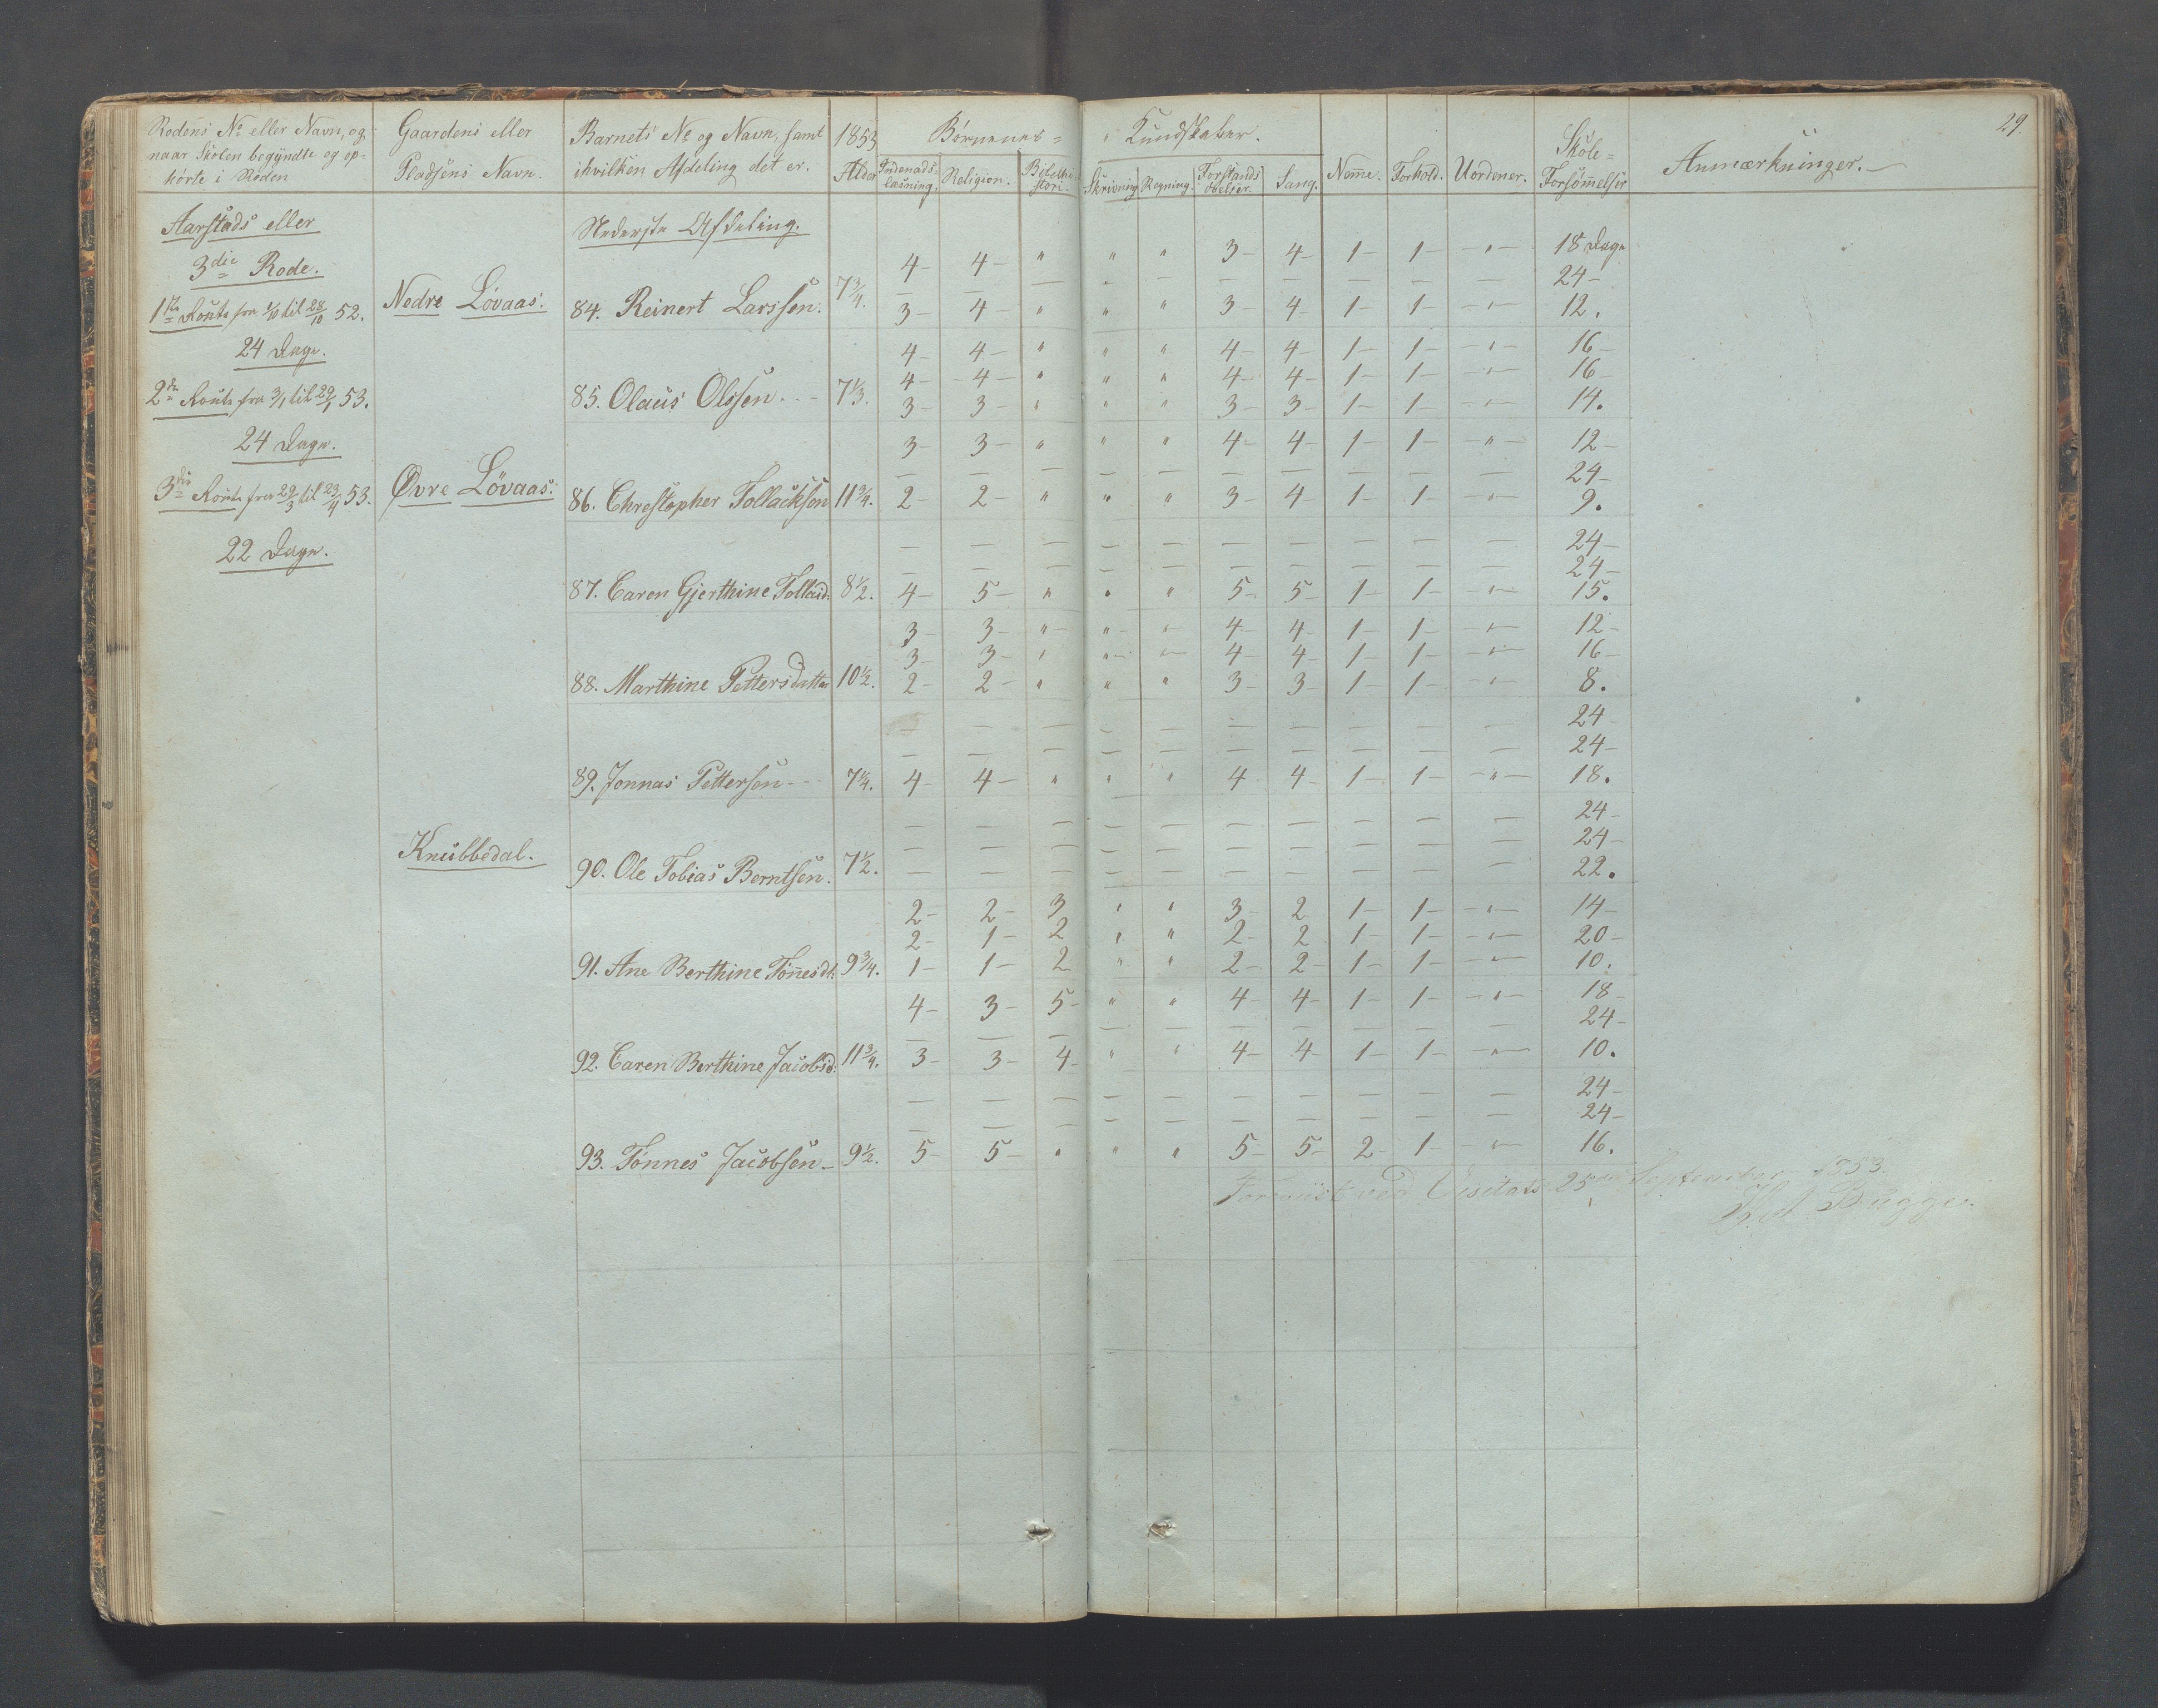 29.
Rodens No eller Navn, og naar Skolen begyndte og ophörte i Roden
Gaardens eller Pladsens Navn.
Barnets No og Navn, samt ihvilken Afdeling det er.
1853 Alder
Börnenes= Kundskaber.
Indenadslæsning. Religion. Bibelhistori. Skrivning Regning. Forstandsövelser. Sang. Nemme. Forhold. Uordener. Skole=Forsömmelser Anmærkninger.
Aarstads eller
Nederste Afdeling.
3die Rode.
4 - 4 - " " " 3 - 4 - 1 - 1 - - " - 18 Dage
— — — — — — — — — — 24 -
1ste Route fra 1/10 til 28/10 52. Nedre Lövaas: 84. Reinert Larssen. 7 3/4. 3 - 4 - " " " 3 - 4 - 1 - 1 - - " - 12.
24 Dage.
4 - 4 - " " " 4 - 4 - 1 - 1 - - " - 16 -
4 - 4 - " " " 4 - 4 - 1 - 1 - - " - 16 -
2den Route fra 3/1 til 29/1 53. 85. Olaus Olssen. - - 7 1/3. 3 - 3 - " " " 3 - 3 - 1 - 1 - - " - 14.
24 Dage.
3 - 3 - " " " 4 - 4 - 1 - 1 - - " - 12 -
— — — — — — — — — — 24 -
3die Route fra 29/3 til 23/4 53. Øvre Lövaas: 86. Christopher Tollacksen 11 3/4. 2 - 2 - " " " 3 - 4 - 1 - 1 - - " - 9.
22 Dage.
— — — — — — — — — — 24 -
— — — — — — — — — — 24 -
87. Caren Gjerthine Tollacd: 8 1/2. 4 - 5 - " " " 5 - 5 - 1 - 1 - - " - 15.
3 - 3 - " " " 4 - 4 - 1 - 1 - - " - 12 -
3 - 3 - " " " 4 - 4 - 1 - 1 - - " - 16 -
88. Marthine Pettersdatter 10 1/2. 2 - 2 - " " " 3 - 3 - 1 - 1 - - " - 8.
— — — — — — — — — 24 -
— — — — — — — — — — 24 -
89. Jonnas Pettersen - - 7 1/4. 4 - 4 - " " " 4 4 - 1 - 1 - - " - 18.
— — — — — — — — — — 24 -
— — — — — — — — — — 24 -
Knubbedal. 90. Ole Tobias Berntsen. 7 1/2. — — — — — — — — — — 22.
2 - 2 - 3 " " 3 - 2 1 - 1 - - " - 14 -
2 - 1 - 2 " " 2 - 2 1 - 1 - - " - 20 -
91. Ane Berthine Tönesdt: 9 3/4. 1 - 1 - 2 " " 2 - 2 - 1 - 1 - - " - 10.
4 - 3 - 5 - " " 4 - 4 - 1 - 1 - - " - 18 -
— — — — — — — — — — 24 -
92. Caren Berthine Jacobsd: 11 3/4. 3 - 3 - 4 - " " 4 - 4 - 1 - 1 - - " - 10.
— — — — — — — — — — 24 -
— — — — — — — — — — 24 -
93. Tönnes Jacobsen - 9 1/2. 5 - 5 - " " " 5 - 5 - 2 - 1 - - " 16.
ved Visitats 25 September 1853.
Bugge.